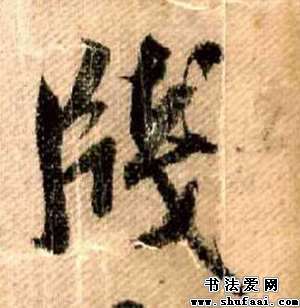 牋
书法爱网
www.shufaai.com